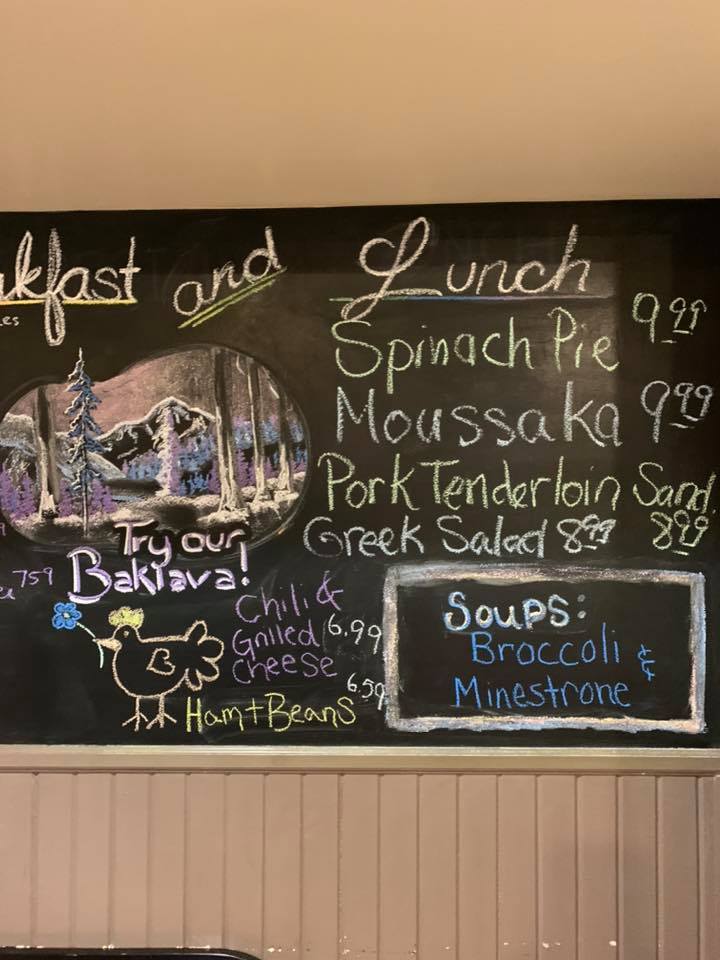 akfast and Lunch
les
Spinach Pie 9.99
Moussaka 9.99
Pork Tenderloin Sand.
8.99
Greek Salad 8.99
Try our
Baklava!
7.59
Chili &
Grilled 6.99
Cheese
B
Ham + Beans 6.59
Soups:
Broccoli &
Minestrone